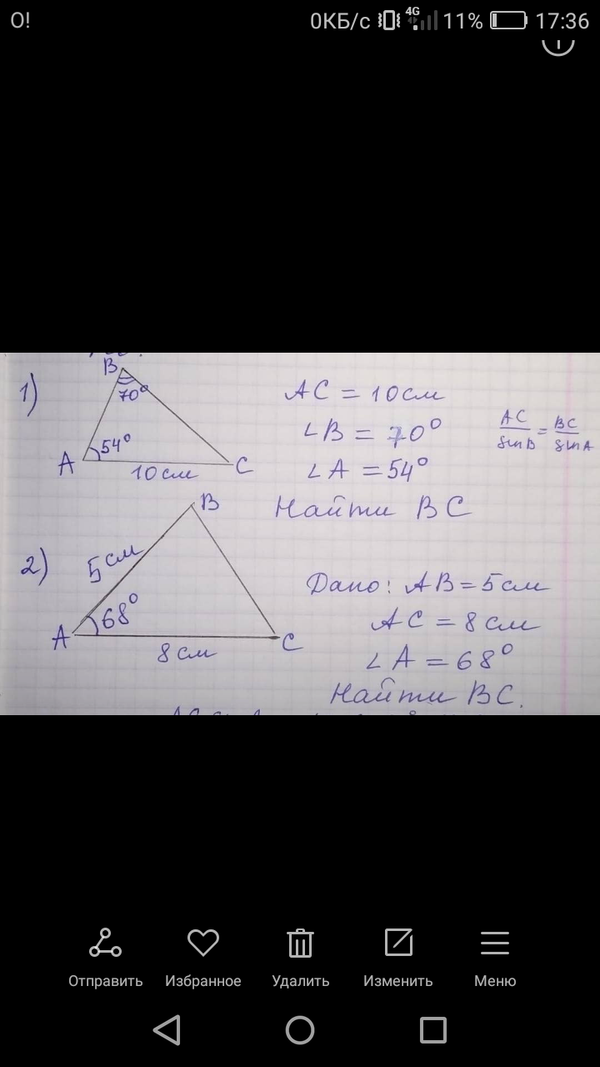 O!
0КБ/с 4G 11% 17:36
1)
B
70°
A
54°
10см
C
AC = 10см
∠B = 70°
∠A = 54°
Найти BC
AC/sinB = BC/sinA
2)
B
5см
A
68°
8см
C
Дано: AB = 5см
AC = 8см
∠A = 68°
Найти BC.
Отправить
Избранное
Удалить
Изменить
Меню